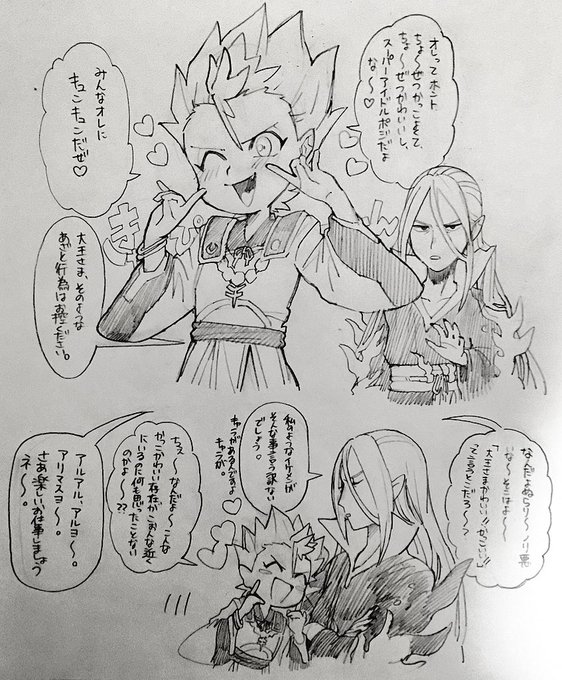 オレってホント
ちょ〜ぜつかっこよくて、
ちょ〜ぜつかわいいし、
スーパーアイドルポジだよ
な〜♡
みんなオレに
キュンキュンだぜ♡
きゅぴ
ん
大王さま、そのような
あざと行為はお控ください。
なんだよぬらり〜ノリ悪
いな〜そこはよ〜
「大王さまかわいい!!かっこいい!!」
って言うとこだろ〜？
私のようなイケメンが
そんな事言う訳ない
でしょう。
キャラがあるんですよ
キャラが。
ちぇ〜なんだよ〜こんな
かっこかわいい存在がこおんな近く
にいるのに何も思ったことない
のかよ〜??
アルアル、アルヨ〜。
アリマスヨ〜。
さあ楽しいお仕事しましょう
ネ〜。